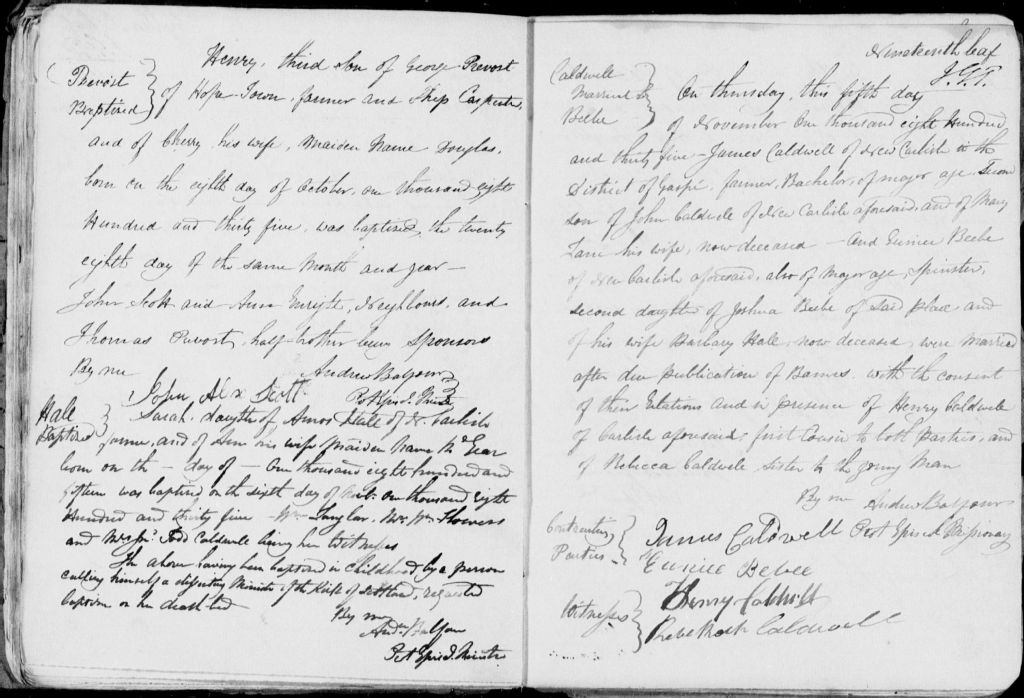 Prevost
Baptized
Henry, third Son of George Prevost
of Hope Town, farmer and Ship Carpenter,
and of Cherry, his wife, Maiden Name Douglas,
born on the eighth day of October, one thousand eight
Hundred and thirty five, was baptized, the twenty
eighth day of the same Month and year —
John Scott and Ann Neighbours, and
Thomas Prevost, half-brother being Sponsors
By me Andrew Balfour
John Alex Scott Prot Epis. l Minister
Hale
Baptized
Sarah, daughter of Amos Hale of N. Carlisle
farmer, and of Ann his wife, Maiden Name
born on the — day of — One thousand eight Hundred and
was baptized on the sixth day of One thousand Eight
Hundred and thirty five Wm. Mrs Wm. Flowers
and Caldwell being her Witnesses
The above having been baptized in childhood by a person
calling himself a dissenting Minister of the Kirk of Scotland, requested
baptism on her death bed
By me
Andw Balfour
Prot Epis. l Minister
Nineteenth leaf
J.G.T.
Caldwell
Married to
Beebe
On thursday, this fifth day
of November One thousand eight Hundred
and thirty five — James Caldwell of New Carlisle in the
District of Gaspé, farmer, Bachelor, of major age, Second
son of John Caldwell of New Carlisle aforesaid, and of Mary
his wife, now deceased — And Eunice Beebe
of New Carlisle aforesaid, also of Major age, Spinster,
Second daughter of Joshua Beebe of Said place and
of his wife Barbary Hall, now deceased, were Married
after due publication of Banns with the consent
of their Relations and in presence of Henry Caldwell
of Carlisle aforesaid, first Cousin to both parties, and
of Rebecca Caldwell Sister to the young Man
By me Andrew Balfour
Prot Epis. l Missionary
Contracting
Parties
James Caldwell
Eunice Bebee
Witnesses
Henry Caldwell
Rebekah Caldwell